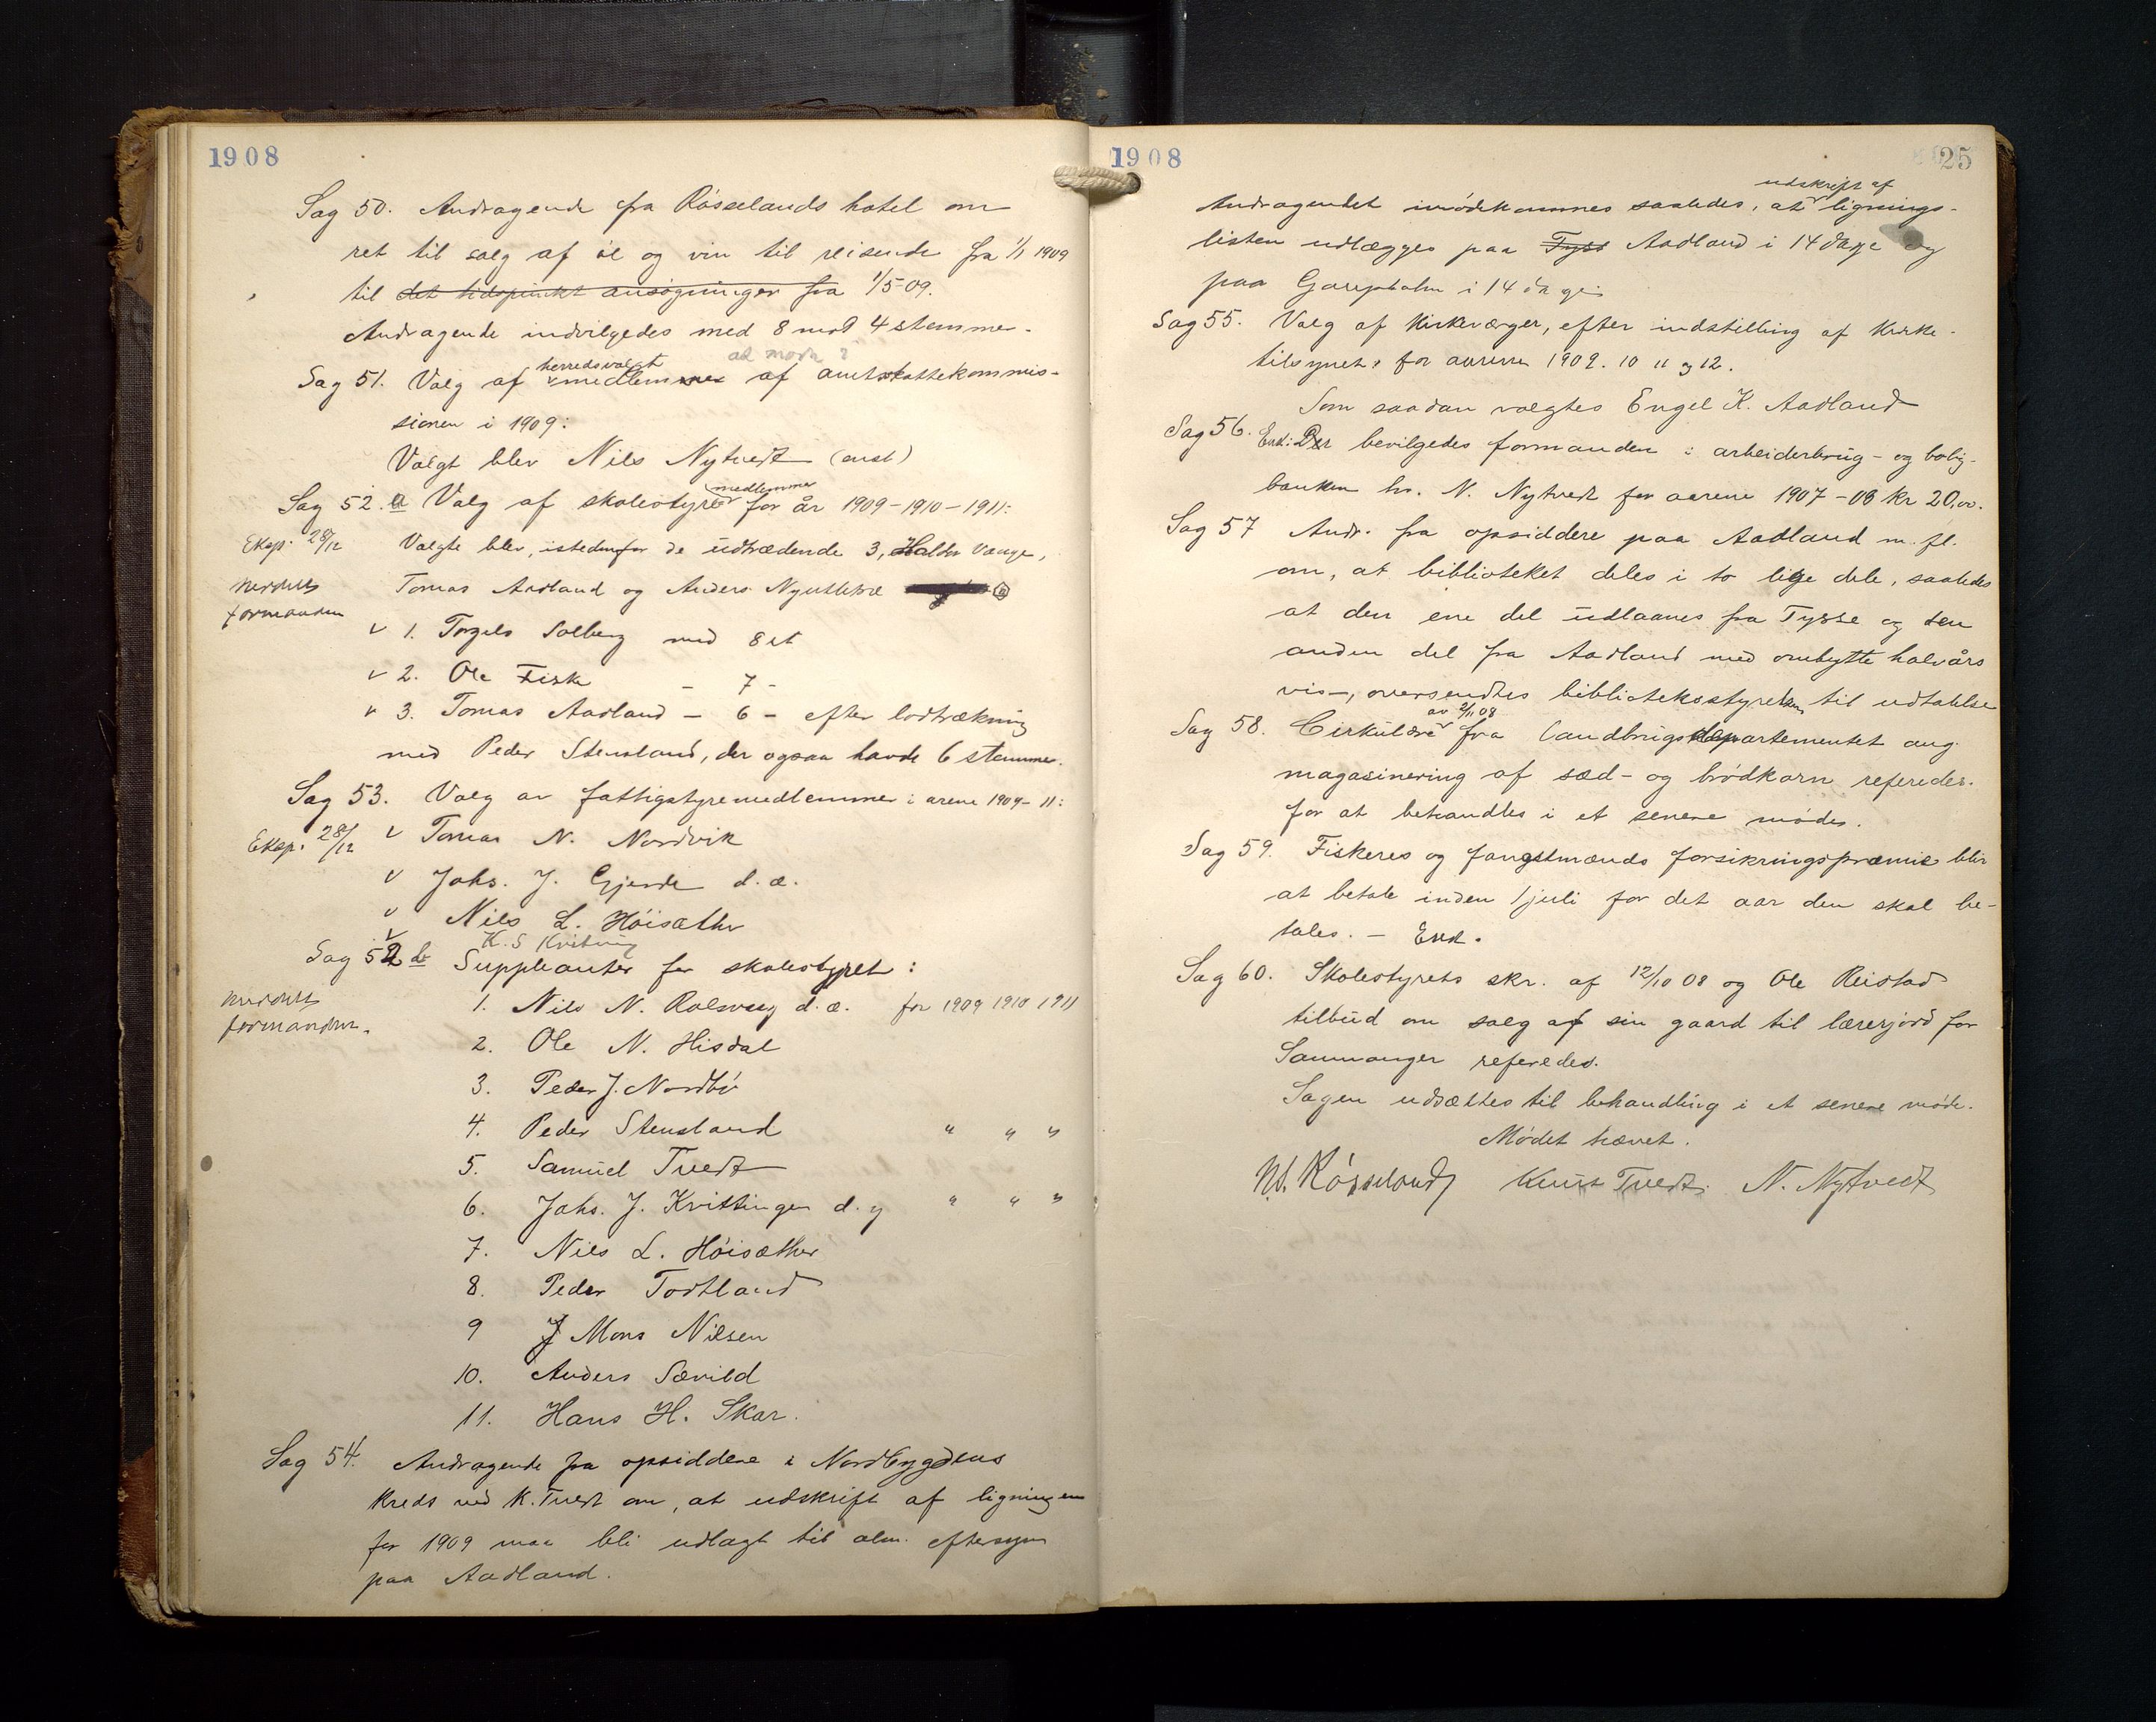 1908
Sag 50. Andragende fra Røsselands hotel om
ret til salg af øl og vin til reisende fra 1/1 1909
til det tidspunkt ansøgninger fra 1/5 09.
Andragende indvilgedes med 8 mod 4 stemmer.
ad mødr ?
herredsvalgt
Sag 51. Valg af medlemmer af amtskattekommis-
sionen i 1909:
Valgt blev Nils Nytvedt (enst)
medlemmer
Sag 52. a Valg af skolestyre for år 1909-1910-1911:
Eksp. 28/12 Valgte blev, istedenfor de udtrædende 3, Haldor Vange,
meddelt Tomas Aadland og Anders Nyutletræ
formanden
v 1. Torgils Solberg med 8 st
v 2. Ole Fisk - 7 -
v 3. Tomas Aadland - 6 - efter lodtrækning
med Peder Stensland, der ogsaa havde 6 stemmer.
Sag 53. Valg av fattigstyremedlemmer i arene 1909-11:
Eksp. 28/12 v Tomas N. Nordvik
v Johs. J. Gjerde d.æ.
v Nils L. Höisæther
v K. S Kvitung
Sag 52 b Suppleanter for skolestyret:
meddelt
formanden.
1. Nils N. Rolsvaag d.æ. for 1909 1910 1911
2. Ole N. Hisdal
3. Peder J. Nordbø
4. Peder Stensland " " "
5. Samuel Tvedt
6. Johs. J. Kvittingen d. y " " "
7. Nils L. Höisæther
8. Peder Tødtland
9 J Mons Nilsen
10. Anders Sævild
11. Hans H. Skar.
Sag 54. Andragende fra opsiddere i Nordbygdens
Kreds ved K. Tvedt om, at udskrift af ligningen
for 1909 maa bli udlagt til alm. eftersyn
paa Aadland.
1908
25
udskrift af
Andragendet imødekommes saaledes, at lignings-
listen udlægges paa Tyss Aadland i 14 dage og
paa Garspholm i 14 dage
Sag 55. Valg af Kirkeværger, efter indstilling af Kirke-
tilsynet, for aarene 1909. 10 11 og 12.
Som saadan valgtes Engel K. Aadland
Sag 56. Enst: Der bevilgedes formanden i arbeiderbrug- og bolig-
banken hr. N. Nytvedt for aarene 1907-08 kr 20,00.
Sag 57 Andr. fra opsiddere paa Aadland m. fl.
om, at biblioteket deles i to lige dele, saaledes
at den ene del udlaanes fra Tysse og den
anden del fra Aadland med ombytte halvårs
vis-, oversendtes biblioteksstyret til udtalelse
av 2/11 08
Sag 58. Cirkulære fra Landbrugsdepartementet ang
magasinering af sæd- og brødkorn referedes.
for at behandles i et senere møde.
Sag 59. Fiskeres og fangstmænds forsikringspræmie blir
at betale inden 1 juli for det aar den skal be-
tales. - Enst.
Sag 60. Skolestyrets skr. af 12/10 08 og Ole Reistad
tilbud om salg af sin gaard til lærerjord for
Samnanger referedes.
Sagen udsættes til behandling i et senere møde.
Mødet hævet.
N. Røsseland Knut Tvedt. N. Nytvedt